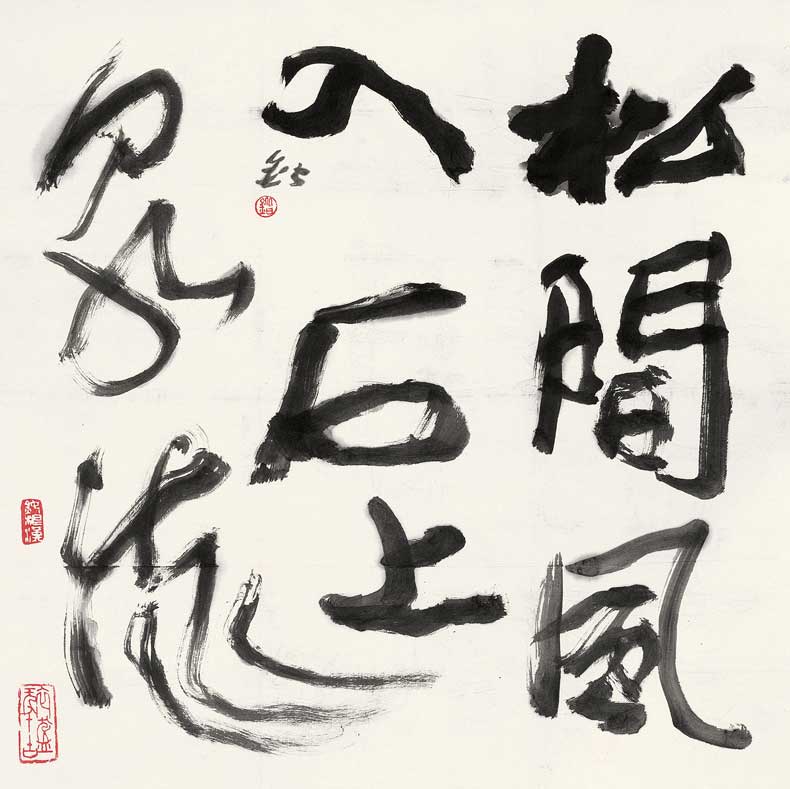 松間風
入石上
泉流